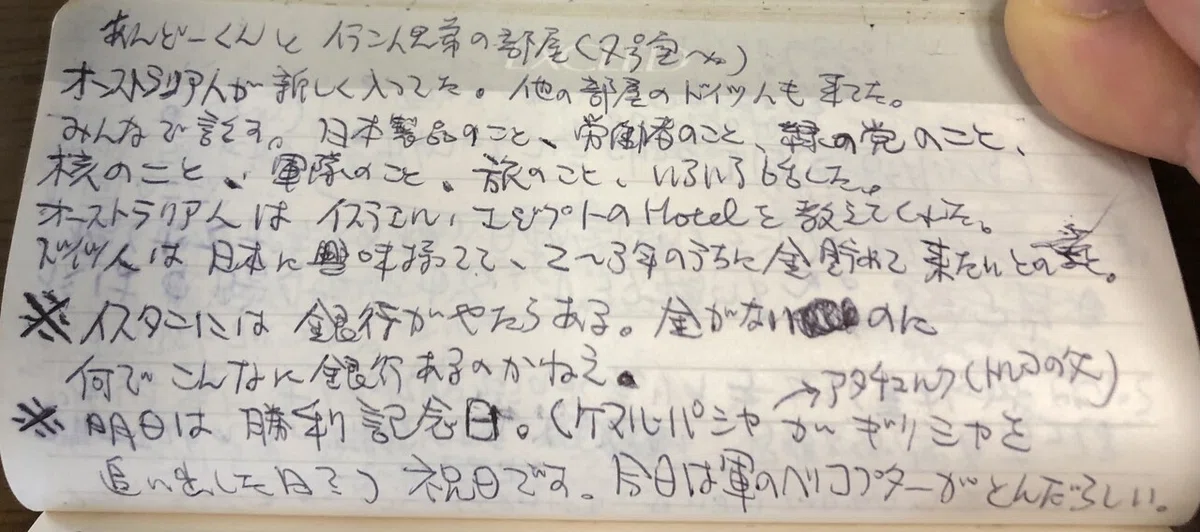 あんどーくんと イラン人兄弟の部屋(7号室へ)
オーストラリア人が新しく入ってた。他の部屋のドイツ人も来てた。
みんなで話す。日本製品のこと、労働者のこと、緑の党のこと、
核のこと、軍隊のこと、旅のこと、いろいろ話した。
オーストラリア人は イスラエル、エジプトのHotelを教えてくれた。
ドイツ人は日本に興味持ってて、2〜3年のうちに金貯めて来たいとの
※イスタンには銀行がやたらある。金がない のに
何でこんなに銀行あるのかねえ。
→アタチュルク(トルコの父)
※明日は勝利記念日。(ケマル・パシャがギリシャを
追い出した日 祝日です。今日は軍のヘリコプターがとんだらしい。